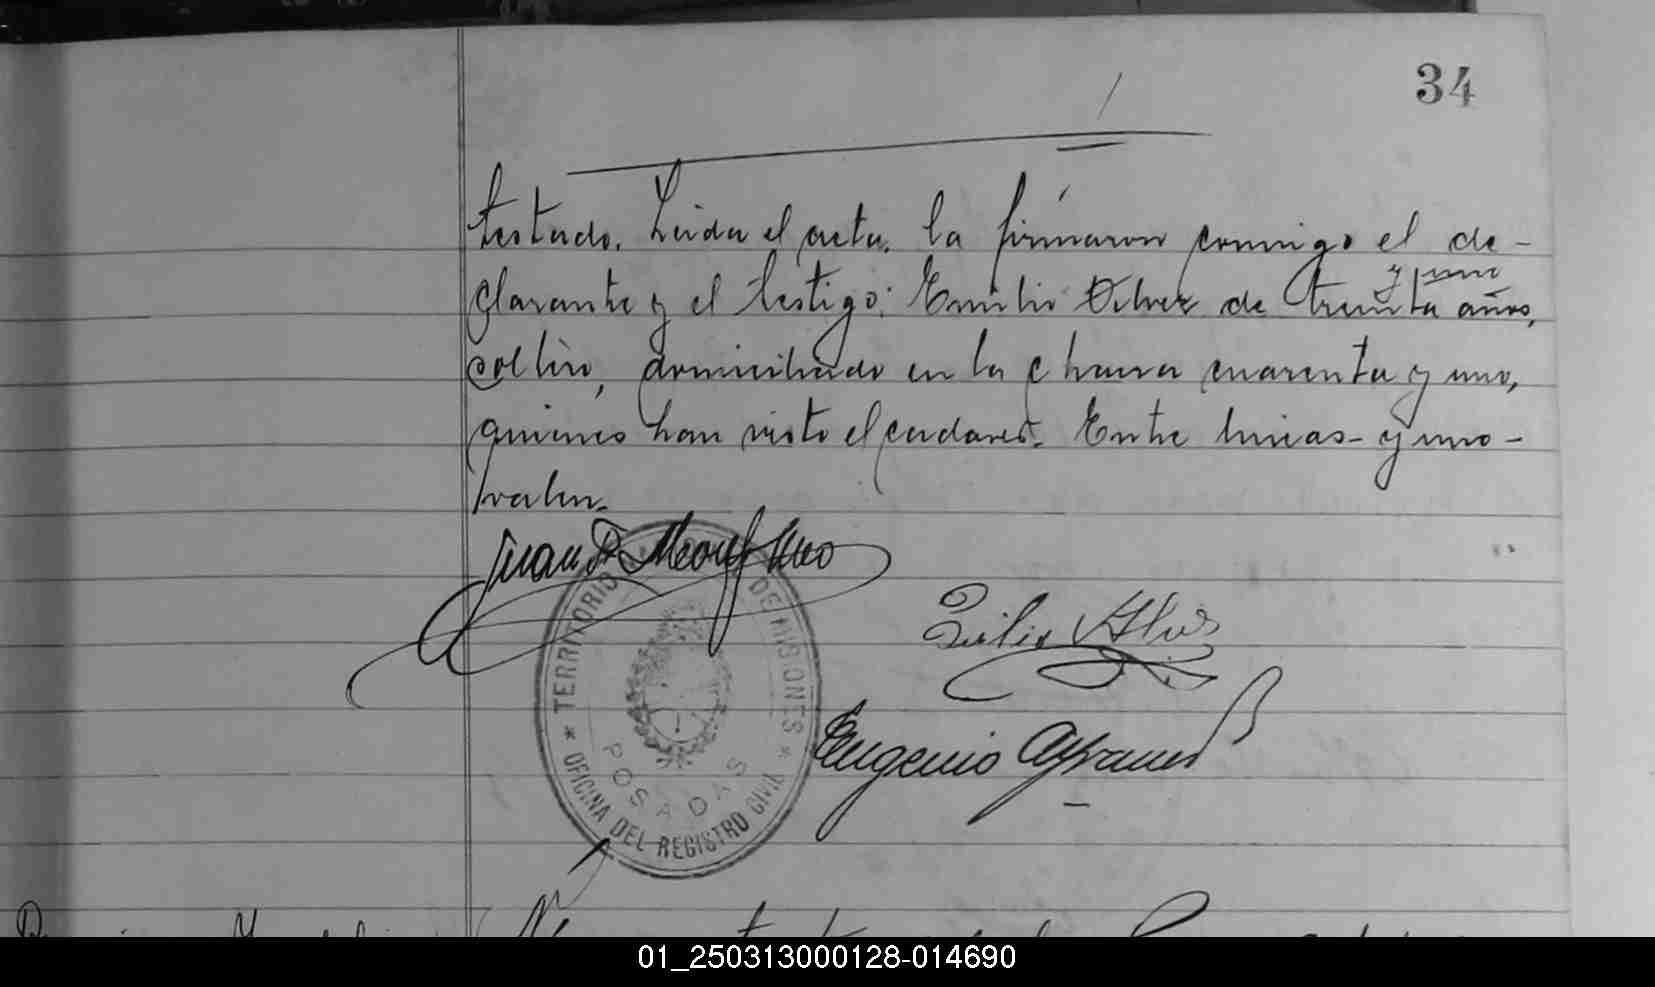 34
testado. Leida el acta, la firmaron conmigo el de-
clarante y el testigo: Emilio de treinta y uno años,
soltero, domiciliado en la chacra cuarenta y uno,
quienes han visto el cadaver. Entre lineas - y uno -
valen.
Juan
TERRITORIO DE MISIONES
POSADAS
* OFICINA DEL REGISTRO CIVIL *
Eugenio
01_250313000128-014690